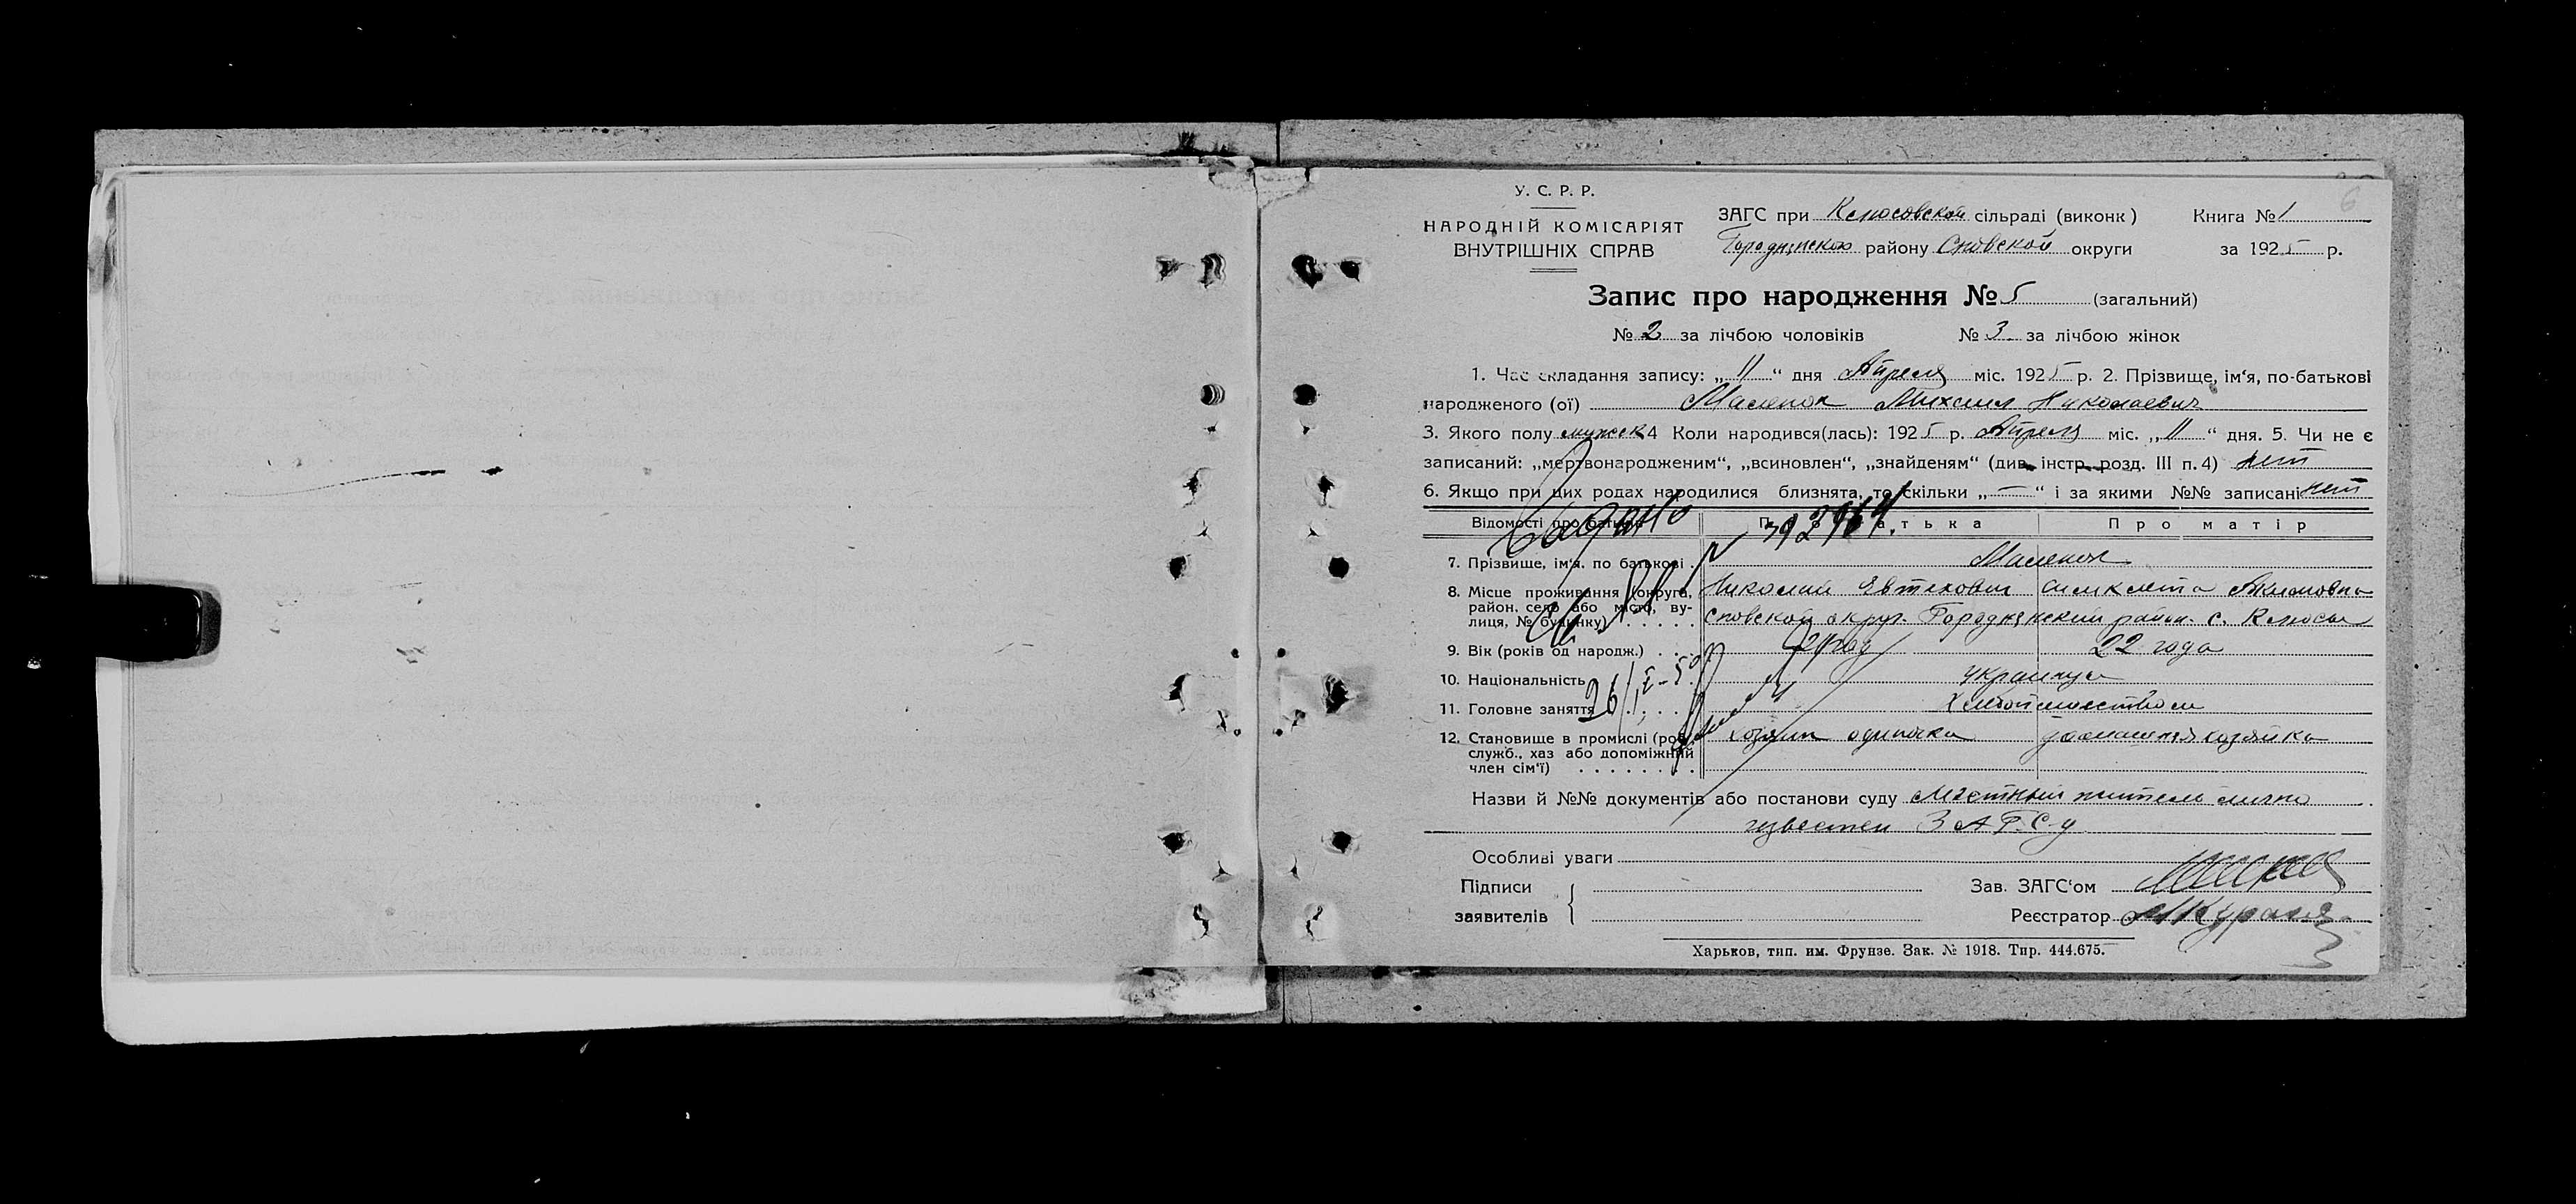 6
У. С. Р. Р.
НАРОДНІЙ КОМІСАРІЯТ
ВНУТРІШНІХ СПРАВ
ЗАГС при Клюсовской сільраді (виконк) Книга № 1
Городнянского району Сновской округи за 1925 р.
Запис про народження № 5 (загальний)
№ 2 за лічбою чоловіків № 3 за лічбою жінок
1. Час складання запису: „11“ дня Апреля міс. 1925 р. 2. Прізвище, ім‘я, по-батькові
народженого (ої) Маленок Михаил Николаевич
3. Якого полу мужск 4 Коли народився(лась): 1925 р. Апреля міс. „11“ дня. 5. Чи не є
записаний: „мертвонародженим“, „всиновлен“, „знайденям“ (див. інстр. розд. III п. 4) нет
6. Якщо при цих родах народилися близнята, то скільки „—“ і за якими №№ записані нет
Відомості про батьків Про батька Про матір
7. Прізвище, ім‘я, по батькові Маленок
8. Місце проживання (округа, Николай Евтихович Акимовна
район, село або місто, ву- Сновской округ. Городнянский район. с. Клюсы
лиця, № будинку)
9. Вік (років од народж.) 22 года
10. Національність украинцы
11. Головне заняття Хлебопашеством
12. Становище в промислі (роб., хозяин одиночка домашняя хозяйка
служб., хаз або допоміжний
член сім‘ї)
Назви й №№ документів або постанови суду местный житель лично
известен ЗАГС-у
Особливі уваги
Підписи
заявителів
Зав. ЗАГС‘ом
Реєстратор
Харьков, тип. им. Фрунзе. Зак. № 1918. Тир. 444.675.